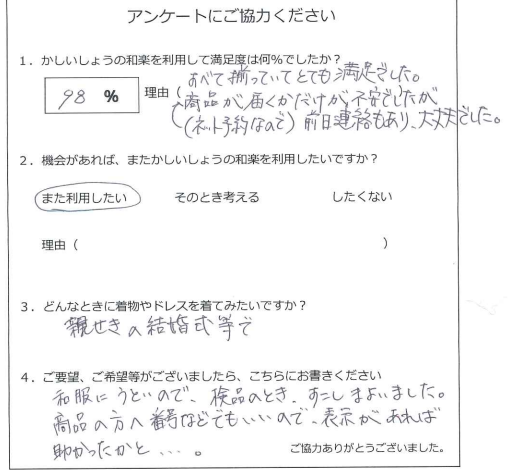 アンケートにご協力ください
1．かしいしょうの和楽を利用して満足度は何%でしたか？
98 %
理由（すべて揃っていてとても満足でした。
商品が届くかだけが不安でしたが
（ネット予約なので）前日連絡もあり、大丈夫でした。
2．機会があれば、またかしいしょうの和楽を利用したいですか？
また利用したい そのとき考える したくない
理由（ ）
3．どんなときに着物やドレスを着てみたいですか？
親せきの結婚式等で
4．ご要望、ご希望等がございましたら、こちらにお書きください
和服にうといので、検品のとき、すこしまよいました。
商品の方へ番号などでもいいので、表示があれば
助かったかと…。
ご協力ありがとうございました。